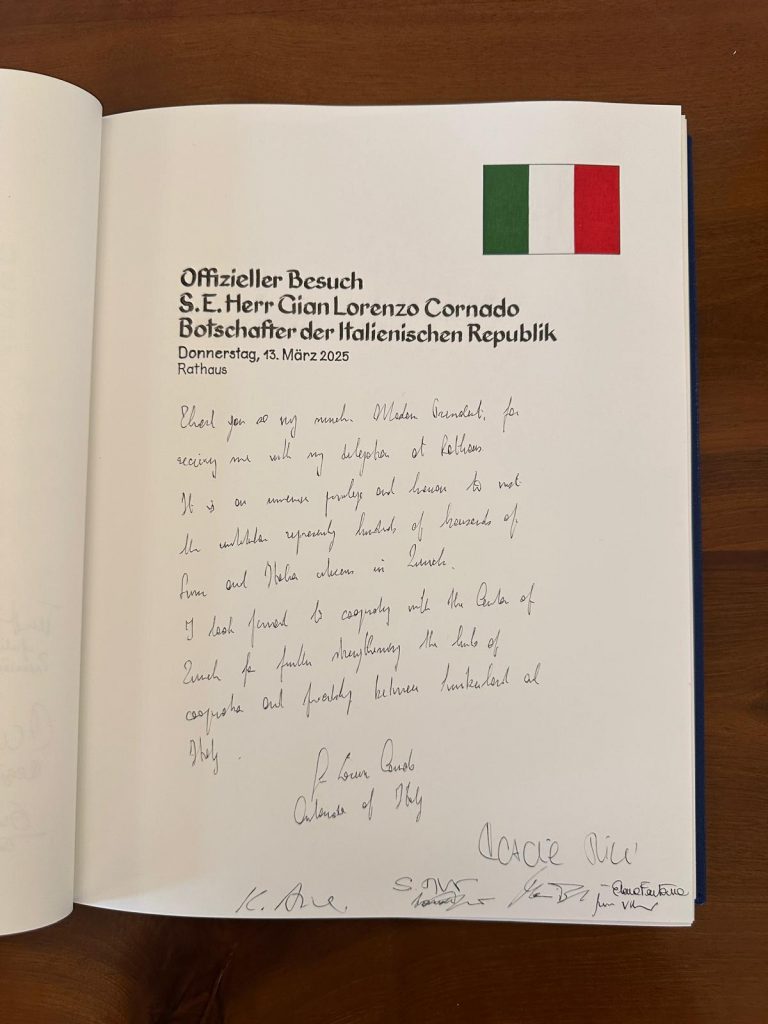 Offizieller Besuch
S.E. Herr Gian Lorenzo Cornado
Botschafter der Italienischen Republik
Donnerstag, 13. März 2025
Rathaus
Thank you so very much Madam President, for
receiving me with my delegation at Rathaus.
It is an immense privilege and honour to meet
the institution representing hundreds of thousands of
Swiss and Italian citizens in Zurich.
I look forward to cooperating with the Canton of
Zurich for further strengthening the links of
cooperation and friendship between Switzerland and
Italy.
Lorenzo Cornado
Ambassador of Italy
K.
S.
Elena Fontana